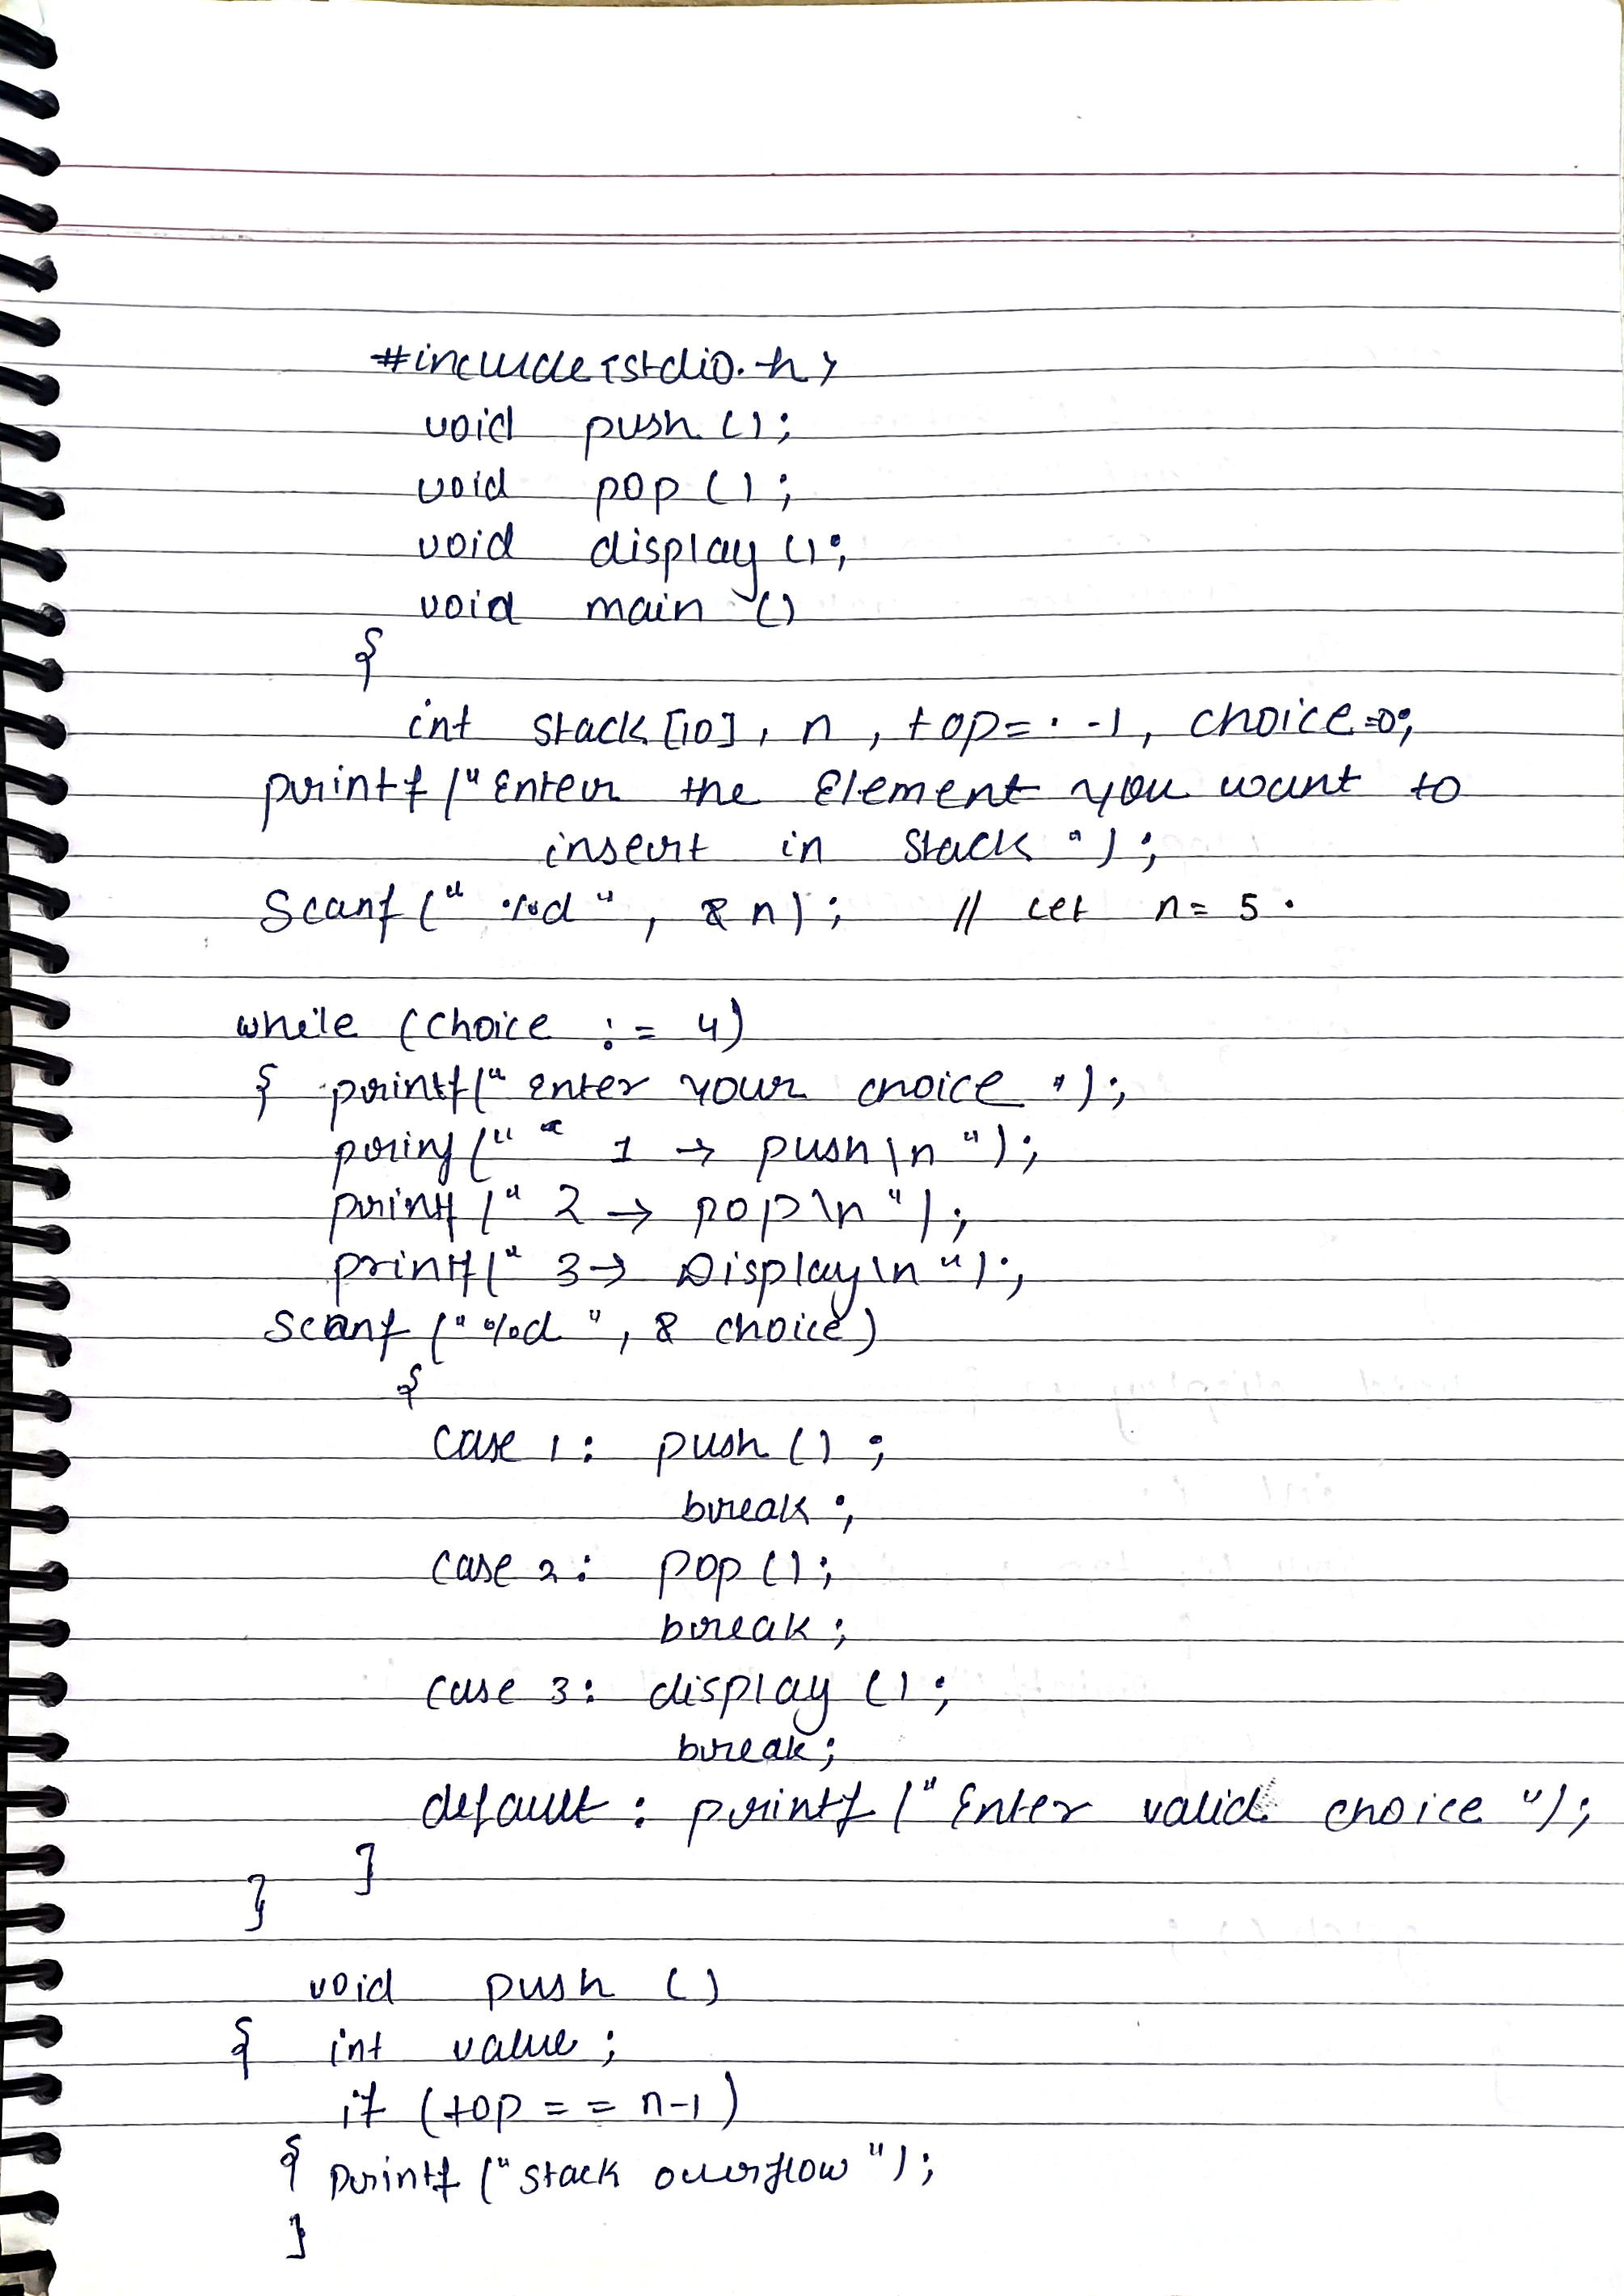 #include<stdio.h>
void push ();
void pop ();
void display ();
void main ()
{
int stack[10], n, top= -1, choice=0;
printf("Enter the Element you want to
insert in stack");
Scanf("%d", &n); // let n= 5.
while (choice != 4)
{ printf("Enter your choice ");
prinf(" 1 → push\n ");
printf(" 2 → pop\n ");
printf(" 3→ Display\n ");
Scanf ("%d ", & choice)
{
case 1: push () ;
break;
case 2: pop ();
break;
case 3: display ();
break;
default : printf ("Enter valid choice ");
}
}
void push ()
{ int value ;
if (top = = n-1)
{ printf ("stack overflow ");
}